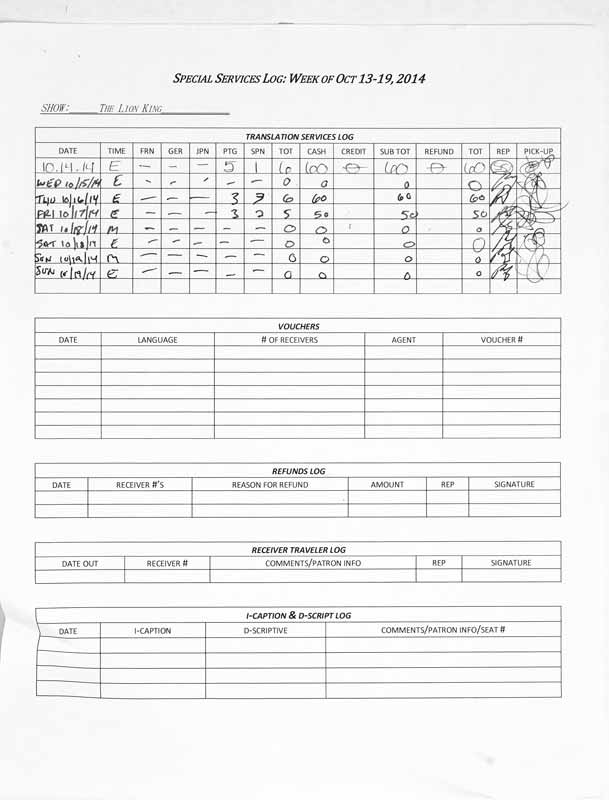 SPECIAL SERVICES LOG: WEEK OF OCT 13-19, 2014
SHOW: THE LION KING
TRANSLATION SERVICES LOG
DATE TIME FRN GER JPN PTG SPN TOT CASH CREDIT SUB TOT REFUND TOT REP PICK-UP
10.14.14 E – – – 5 1 6 60 0 60 0 60
WED 10/15/14 E – – – – – 0 0 0 0
THU 10/16/14 E – – – 3 3 6 60 60 60
FRI 10/17/14 E – – – 3 2 5 50 50 50
SAT 10/18/14 M – – – – – 0 0 0 0
SAT 10/18/14 E – – – – – 0 0 0 0
SUN 10/19/14 M – – – – – 0 0 0 0
SUN 10/19/14 E – – – – – 0 0 0 0
VOUCHERS
DATE LANGUAGE # OF RECEIVERS AGENT VOUCHER #
REFUNDS LOG
DATE RECEIVER #'S REASON FOR REFUND AMOUNT REP SIGNATURE
RECEIVER TRAVELER LOG
DATE OUT RECEIVER # COMMENTS/PATRON INFO REP SIGNATURE
I-CAPTION & D-SCRIPT LOG
DATE I-CAPTION D-SCRIPTIVE COMMENTS/PATRON INFO/SEAT #